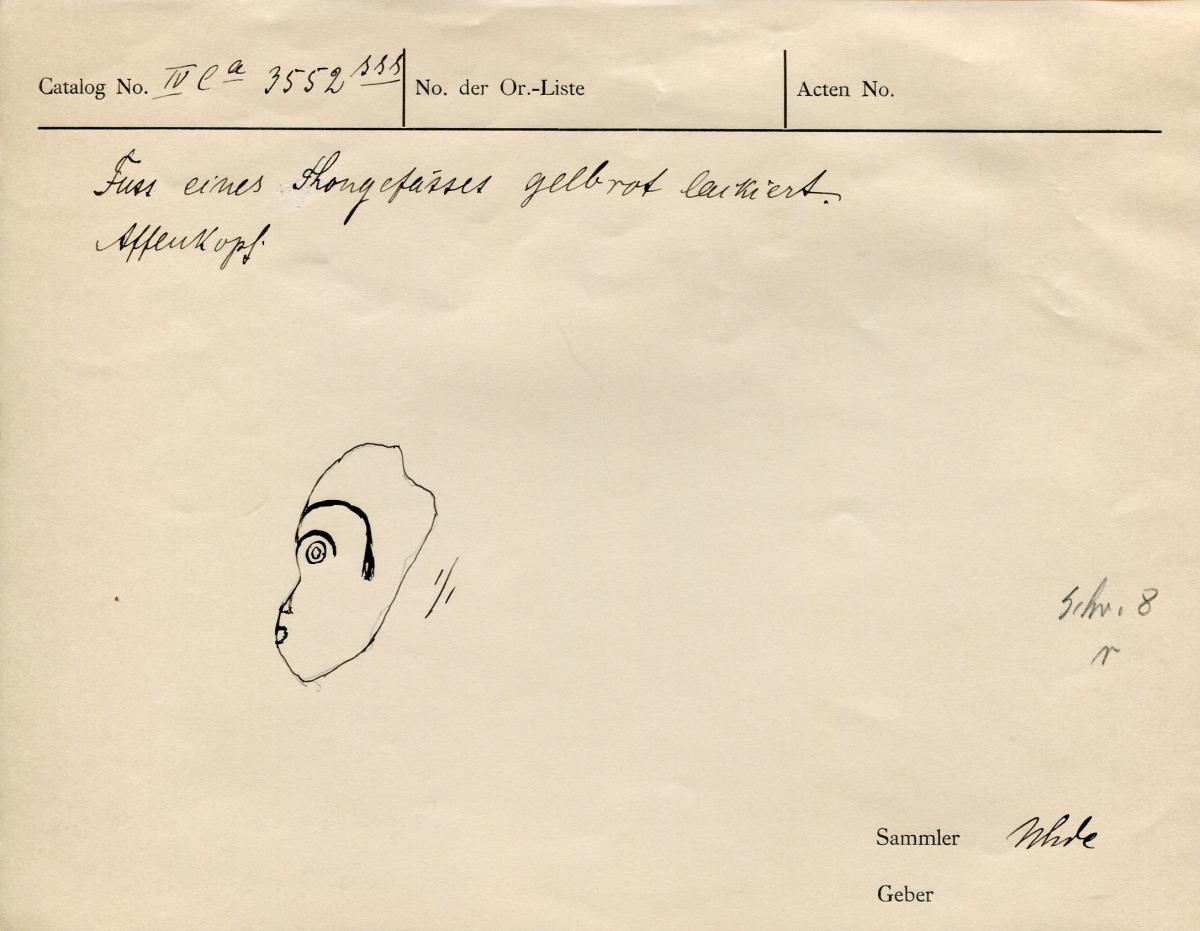 Catalog No. IV Ca 3552 sss No. der Or.-Liste Acten No.
Fuss eines Thongefässes gelbrot lackiert.
Affenkopf.
1/1
Schr. 8
r
Sammler Uhde
Geber